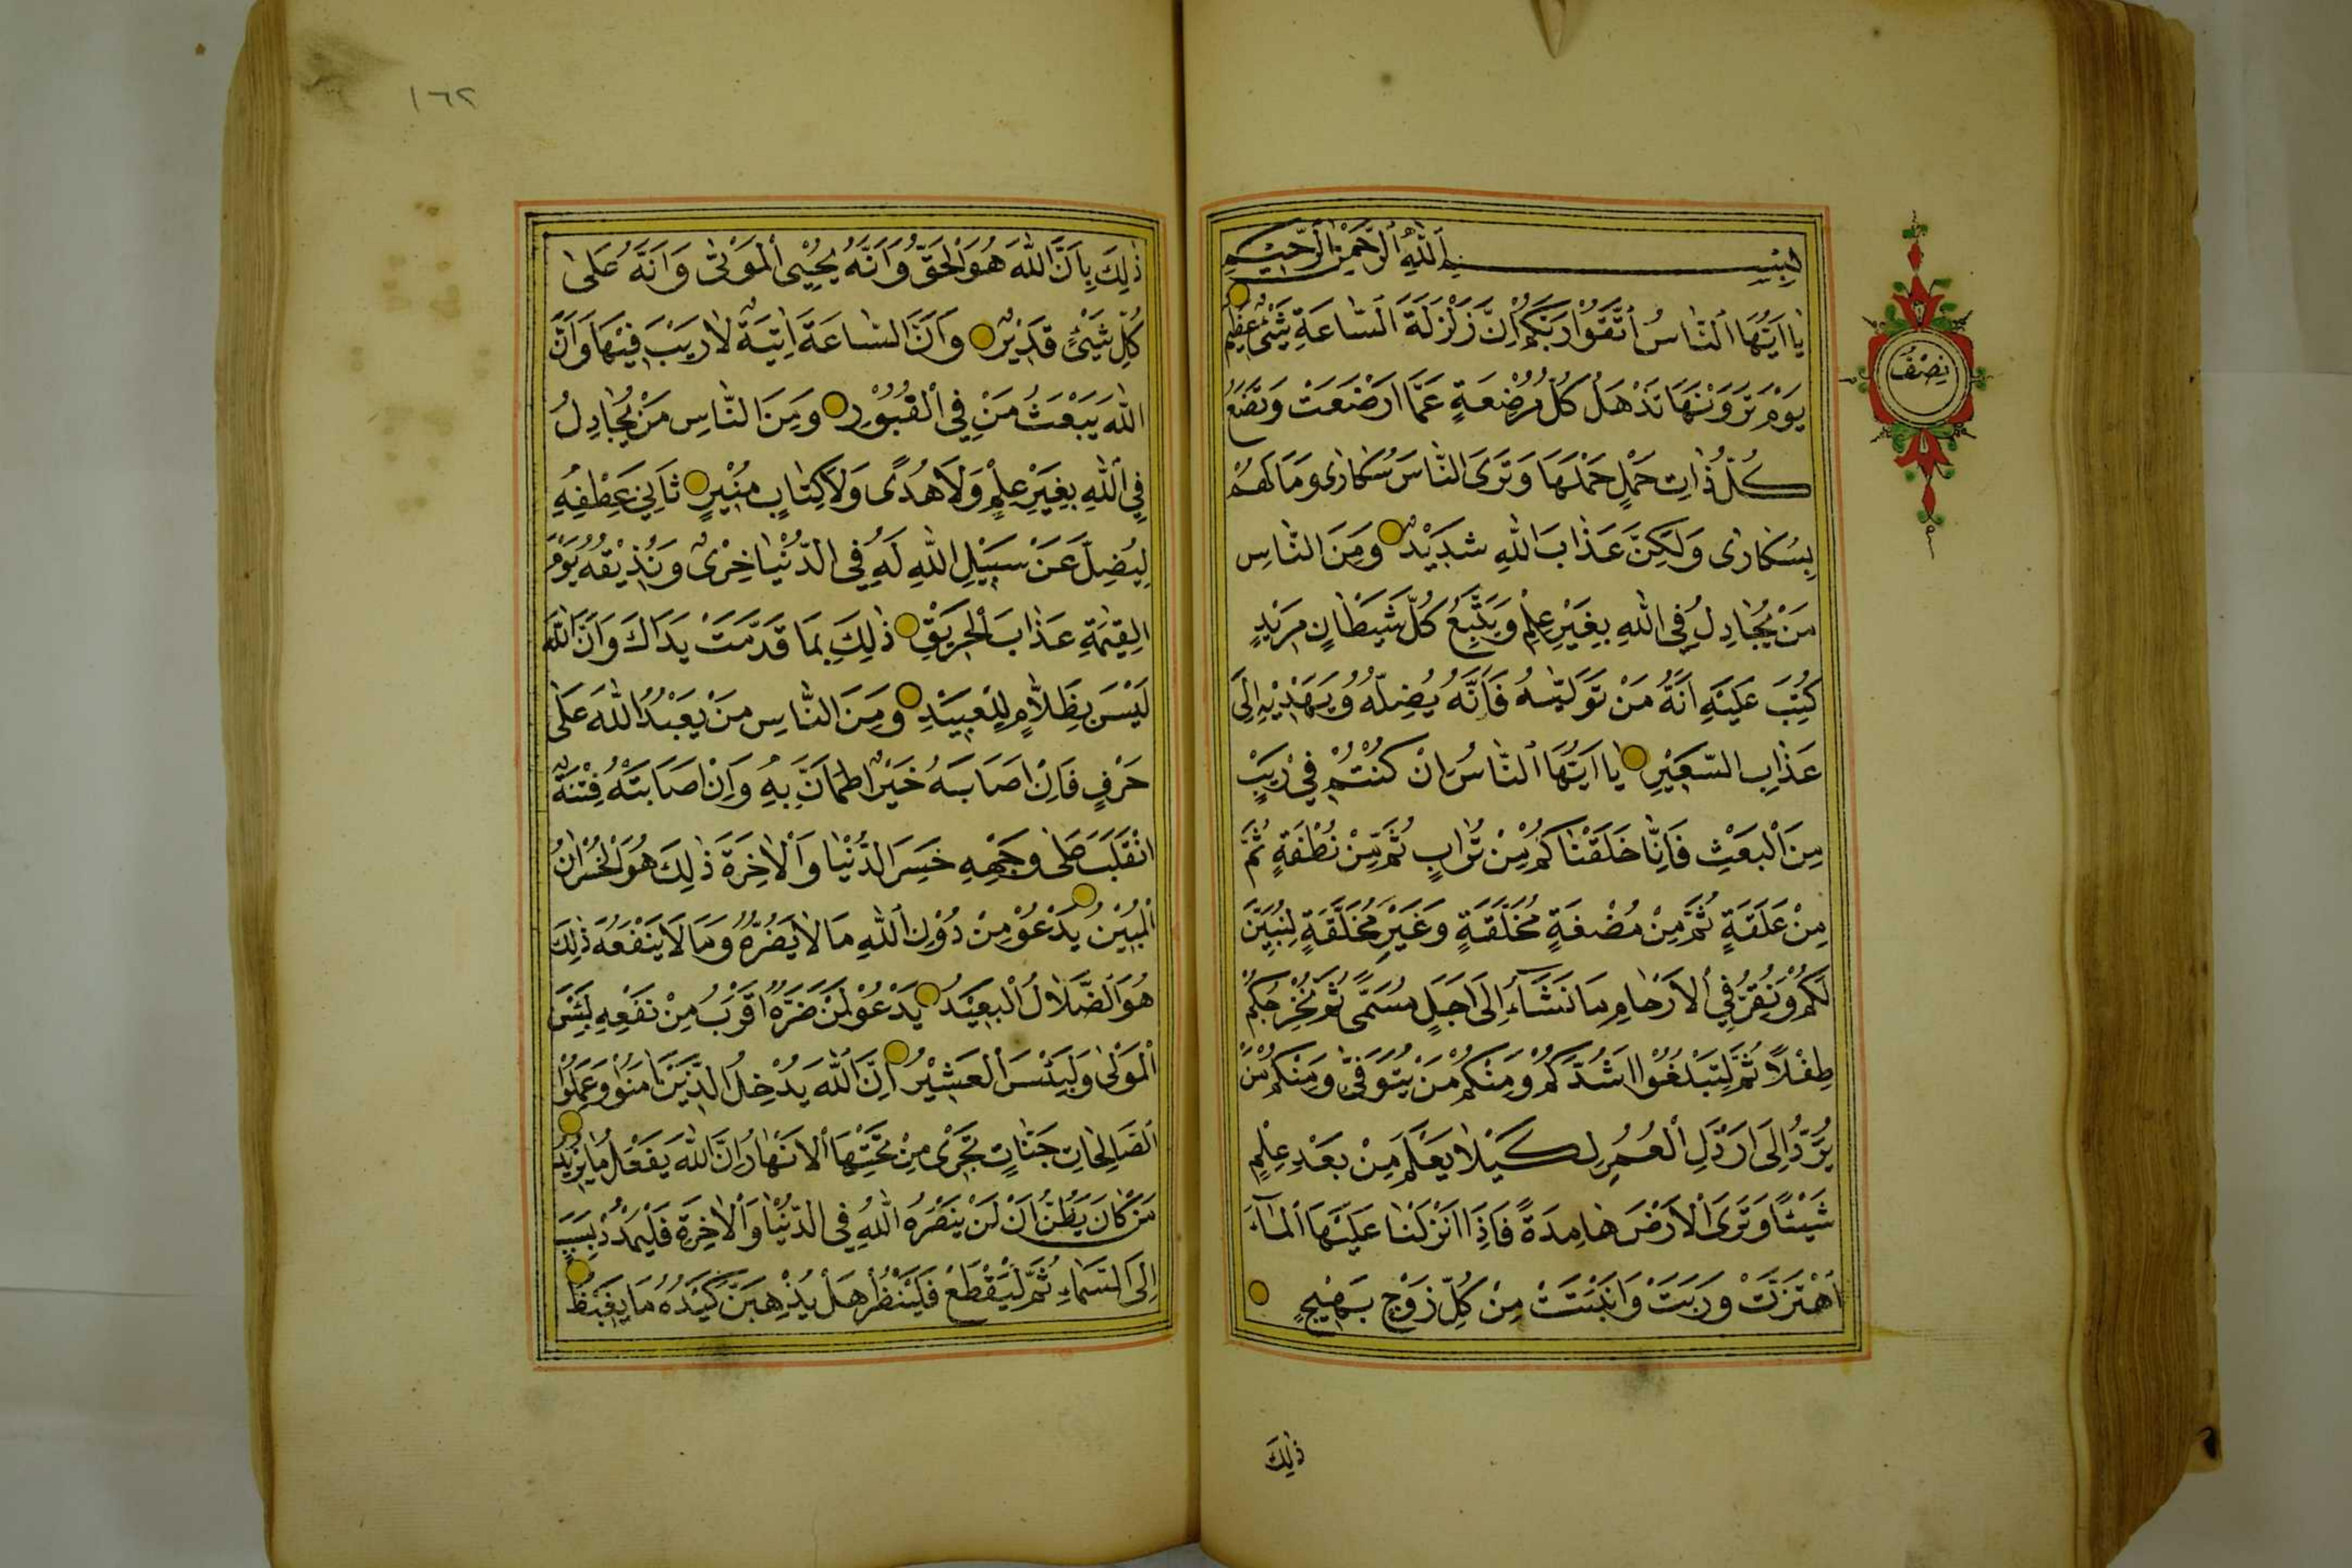 بِسْمِ اللّٰهِ الرَّحْمٰنِ الرَّحِيْمِ
يَا اَيُّهَا النَّاسُ اتَّقُوْا رَبَّكُمْ اِنَّ زَلْزَلَةَ السَّاعَةِ شَيْئٌ عَظِيْمٌ
يَوْمَ تَرَوْنَهَا تَذْهَلُ كُلُّ مُرْضِعَةٍ عَمَّا اَرْضَعَتْ وَتَضَعُ
كُلُّ ذَاتِ حَمْلٍ حَمْلَهَا وَتَرَى النَّاسَ سُكَارٰى وَمَا هُمْ
بِسُكَارٰى وَلٰكِنَّ عَذَابَ اللّٰهِ شَدِيْدٌ وَمِنَ النَّاسِ
مَنْ يُجَادِلُ فِى اللّٰهِ بِغَيْرِ عِلْمٍ وَيَتَّبِعُ كُلَّ شَيْطَانٍ مَرِيْدٍ
كُتِبَ عَلَيْهِ اَنَّهُ مَنْ تَوَلَّيٰهُ فَاَنَّهُ يُضِلُّهُ وَيَهْدِيْهِ اِلٰى
عَذَابِ السَّعِيْرِ يَا اَيُّهَا النَّاسُ اِنْ كُنْتُمْ فِيْ رَيْبٍ
مِنَ الْبَعْثِ فَاِنَّا خَلَقْنَاكُمْ مِنْ تُرَابٍ ثُمَّ مِنْ نُطْفَةٍ ثُمَّ
مِنْ عَلَقَةٍ ثُمَّ مِنْ مُضْغَةٍ مُخَلَّقَةٍ وَغَيْرِ مُخَلَّقَةٍ لِنُبَيِّنَ
لَكُمْ وَنُقِرُّ فِي الْاَرْحَامِ مَا نَشَآءُ اِلٰى اَجَلٍ مُسَمًّى ثُمَّ نُخْرِجُكُمْ
طِفْلًا ثُمَّ لِتَبْلُغُوْا اَشُدَّكُمْ وَمِنْكُمْ مَنْ يُتَوَفّٰى وَمِنْكُمْ مَنْ
يُرَدُّ اِلٰى اَرْذَلِ الْعُمُرِ لِكَيْلَا يَعْلَمَ مِنْ بَعْدِ عِلْمٍ
شَيْئًا وَتَرَى الْاَرْضَ هَامِدَةً فَاِذَا اَنْزَلْنَا عَلَيْهَا الْمَآءَ
اهْتَزَّتْ وَرَبَتْ وَاَنْبَتَتْ مِنْ كُلِّ زَوْجٍ بَهِيْجٍ
ذٰلِكَ
نِصْفُ
١٦٢
ذٰلِكَ بِاَنَّ اللّٰهَ هُوَ الْحَقُّ وَاَنَّهُ يُحْيِى الْمَوْتٰى وَاَنَّهُ عَلٰى
كُلِّ شَيْئٍ قَدِيْرٌ وَاَنَّ السَّاعَةَ اٰتِيَةٌ لَا رَيْبَ فِيْهَا وَاَنَّ
اللّٰهَ يَبْعَثُ مَنْ فِي الْقُبُوْرِ وَمِنَ النَّاسِ مَنْ يُجَادِلُ
فِي اللّٰهِ بِغَيْرِ عِلْمٍ وَلَا هُدًى وَلَا كِتَابٍ مُنِيْرٍ ثَانِيَ عِطْفِهِ
لِيُضِلَّ عَنْ سَبِيْلِ اللّٰهِ لَهُ فِي الدُّنْيَا خِزْىٌ وَنُذِيْقُهُ يَوْمَ
الْقِيٰمَةِ عَذَابَ الْحَرِيْقِ ذٰلِكَ بِمَا قَدَّمَتْ يَدَاكَ وَاَنَّ اللّٰهَ
لَيْسَ بِظَلَّامٍ لِلْعَبِيْدِ وَمِنَ النَّاسِ مَنْ يَعْبُدُ اللّٰهَ عَلٰى
حَرْفٍ فَاِنْ اَصَابَهُ خَيْرٌ اطْمَاَنَّ بِهِ وَاِنْ اَصَابَتْهُ فِتْنَةٌ
انْقَلَبَ عَلٰى وَجْهِهِ خَسِرَ الدُّنْيَا وَالْاٰخِرَةَ ذٰلِكَ هُوَ الْخُسْرَانُ
الْمُبِيْنُ يَدْعُوْ مِنْ دُوْنِ اللّٰهِ مَا لَا يَضُرُّهُ وَمَا لَا يَنْفَعُهُ ذٰلِكَ
هُوَ الضَّلَالُ الْبَعِيْدُ يَدْعُوْ لَمَنْ ضَرُّهُ اَقْرَبُ مِنْ نَفْعِهِ لَبِئْسَ
الْمَوْلٰى وَلَبِئْسَ الْعَشِيْرُ اِنَّ اللّٰهَ يُدْخِلُ الَّذِيْنَ اٰمَنُوْا وَعَمِلُوْا
الصَّالِحَاتِ جَنَّاتٍ تَجْرِى مِنْ تَحْتِهَا الْاَنْهَارُ اِنَّ اللّٰهَ يَفْعَلُ مَا يُرِيْدُ
مَنْ كَانَ يَظُنُّ اَنْ لَنْ يَنْصُرَهُ اللّٰهُ فِي الدُّنْيَا وَالْاٰخِرَةِ فَلْيَمْدُدْ بِسَبَبٍ
اِلَى السَّمَاءِ ثُمَّ لْيَقْطَعْ فَلْيَنْظُرْ هَلْ يُذْهِبَنَّ كَيْدُهُ مَا يَغِيْظُ